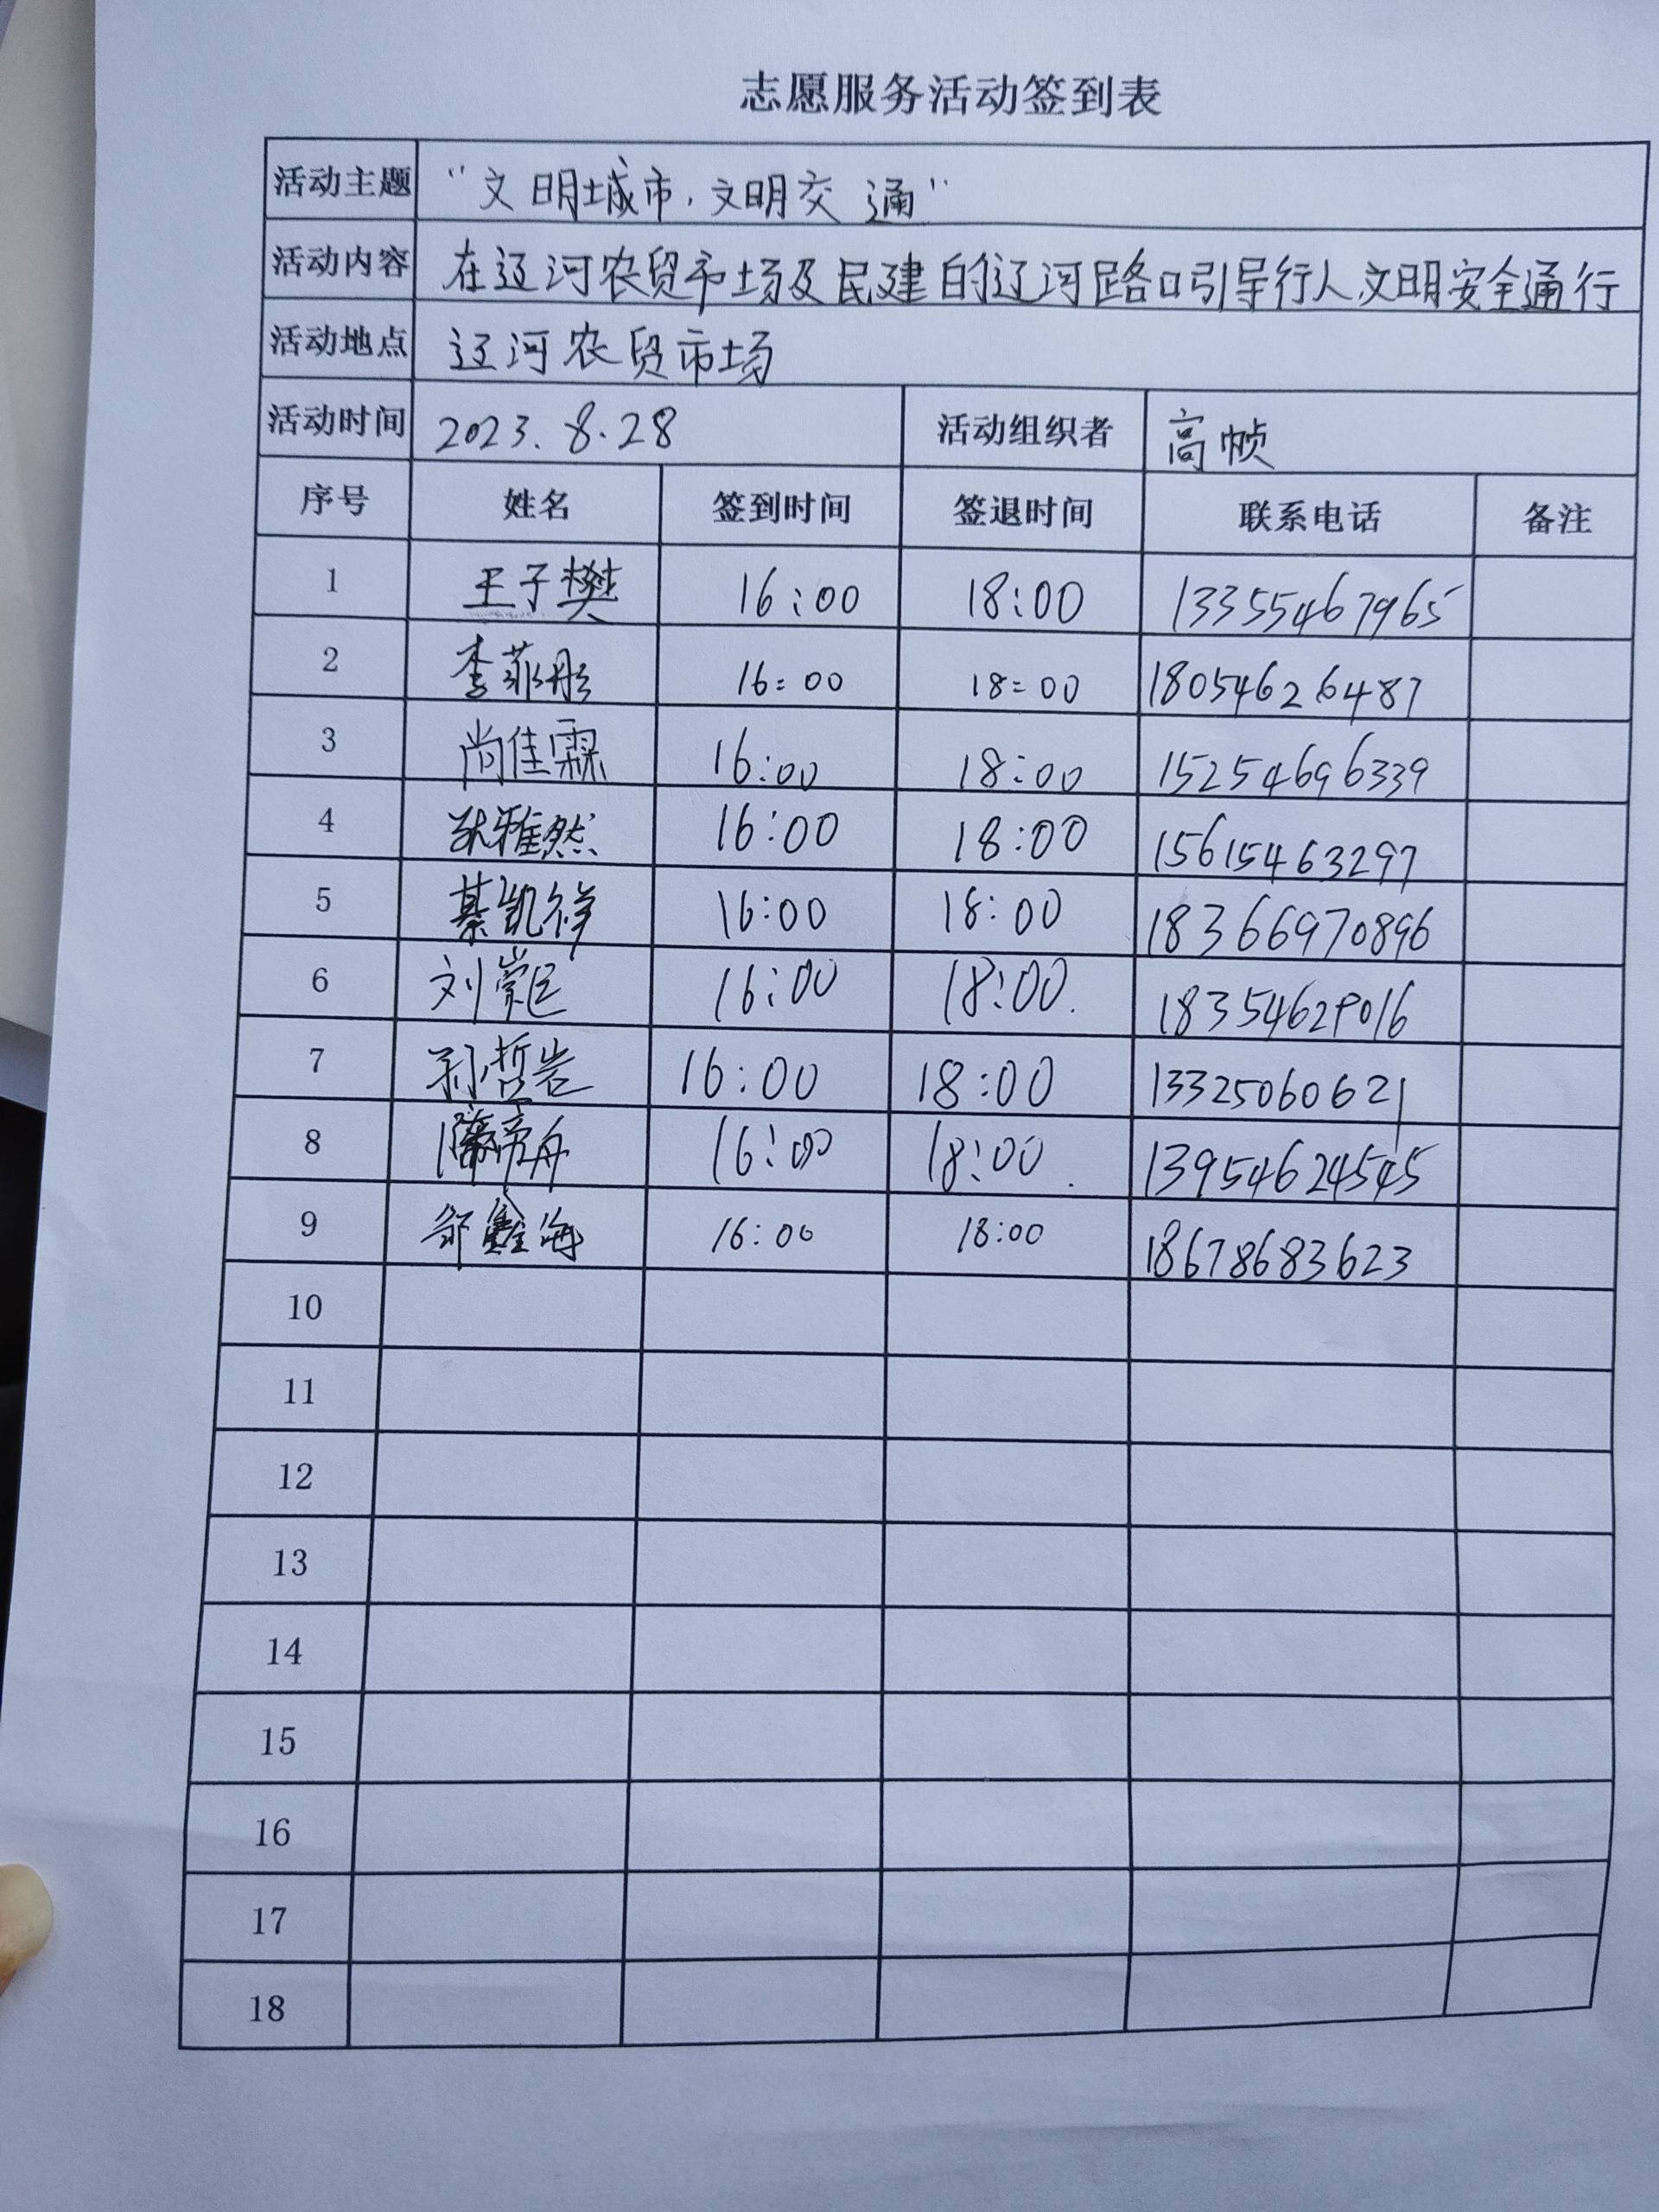 志愿服务活动签到表
活动主题 “文明城市，文明交通”
活动内容 在辽河农贸市场及民建的辽河路口引导行人文明安全通行
活动地点 辽河农贸市场
活动时间 2023.8.28 活动组织者 高帧
序号 姓名 签到时间 签退时间 联系电话 备注
1 王子樊 16:00 18:00 13355467965
2 李菲彤 16:00 18:00 18054626487
3 尚佳霖 16:00 18:00 15254696339
4 耿雅然 16:00 18:00 15615463297
5 綦凯祥 16:00 18:00 18366970896
6 刘崇 16:00 18:00. 18354629016
7 孙哲岩 16:00 18:00 13325060621
8 16:00 18:00. 13954624545
9 邹鑫海 16:00 18:00 18678683623
10
11
12
13
14
15
16
17
18